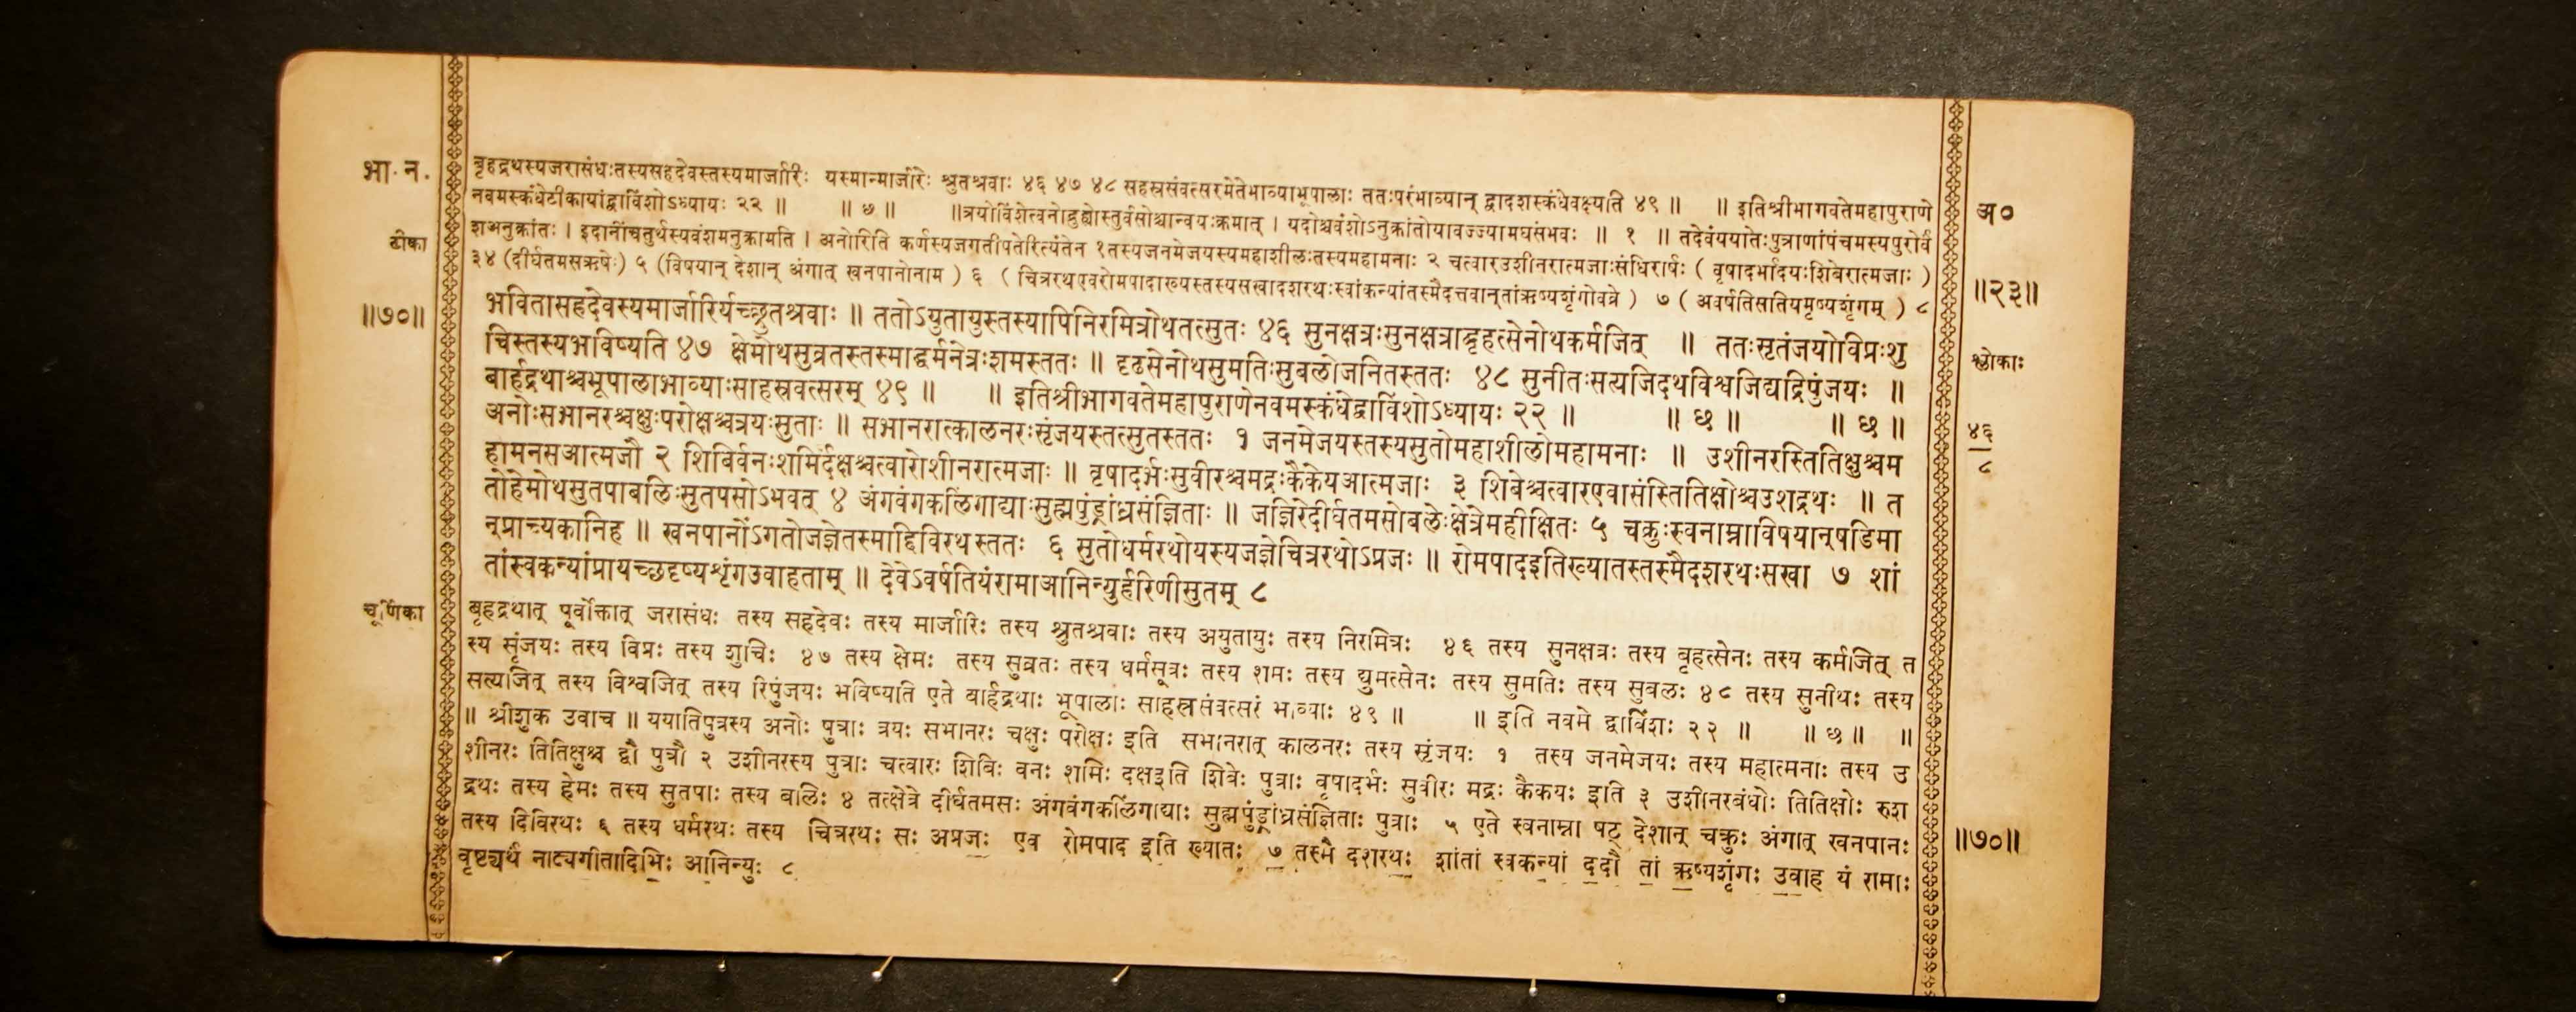 भा. न.
बृहद्रथस्यजरासंधःतस्यसहदेवस्तस्यमार्जारिः यस्मान्मार्जारेः श्रुतश्रवाः ४६ ४७ ४८ सहस्रसंवत्सरमेतेभाव्याभूपालाः ततःपरंभाव्यान् द्वादशस्कंधेवक्ष्यति ४९ ॥ ॥ इतिश्रीभागवतेमहापुराणे
अ०
नवमस्कंधेटीकायांद्वाविंशोऽध्यायः २२ ॥ ॥ ७ ॥ ॥त्रयोविंशेत्वनोद्रुह्योस्तुर्वसोश्चान्वयःक्रमात् । यदोश्चवंशोऽनुक्रांतोयावज्ज्यामघसंभवः ॥ १ ॥ तदेवंययातेःपुत्राणांपंचमस्यपुरोर्वं
टीका
शअनुक्रांतः । इदानींचतुर्थस्यवंशमनुक्रामति । अनोरिति कर्णस्यजगतीपतेरित्यंतेन १तस्यजनमेजयस्यमहाशीलःतस्यमहामनाः २ चत्वारउशीनरात्मजाःसंधिरार्षः ( वृषादर्भादयःशिबेरात्मजाः )
३४ (दीर्घतमसऋषेः) ५ (विषयान् देशान् अंगात् खनपानोनाम ) ६ ( चित्ररथएवरोमपादाख्यस्तस्यसखादशरथःस्वांकन्यांतस्मैदत्तवान्तांऋष्यशृंगोवव्रे ) ७ ( अवर्षतिसतियमृष्यशृंगम् ) ८
॥२३॥
॥७०॥
भवितासहदेवस्यमार्जारिर्यच्छ्रुतश्रवाः ॥ ततोऽयुतायुस्तस्यापिनिरमित्रोथतत्सुतः ४६ सुनक्षत्रःसुनक्षत्राद्बृहत्सेनोथकर्मजित् ॥ ततःसृतंजयोविप्रःशु
चिस्तस्यभविष्यति ४७ क्षेमोथसुव्रतस्तस्माद्धर्मनेत्रःशमस्ततः ॥ दृढसेनोथसुमतिःसुबलोजनितस्ततः ४८ सुनीतःसत्यजिदथविश्वजिद्यद्रिपुंजयः ॥
श्लोकाः
बार्हद्रथाश्चभूपालाभाव्याःसाहस्रवत्सरम् ४९ ॥ ॥ इतिश्रीभागवतेमहापुराणेनवमस्कंधेद्वाविंशोऽध्यायः २२ ॥ ॥ छ ॥ ॥ छ ॥
अनोःसभानरश्चक्षुःपरोक्षश्चत्रयःसुताः ॥ सभानरात्कालनरःसृंजयस्तत्सुतस्ततः १ जनमेजयस्तस्यसुतोमहाशीलोमहामनाः ॥ उशीनरस्तितिक्षुश्चम
४६
८
हामनसआत्मजौ २ शिबिर्वनःशमिर्दक्षश्चत्वारोशीनरात्मजाः ॥ वृषादर्भःसुवीरश्चमद्रःकैकेयआत्मजाः ३ शिबेश्चत्वारएवासंस्तितिक्षोश्चउशद्रथः ॥ त
तोहेमोथसुतपाबलिःसुतपसोऽभवत् ४ अंगवंगकलिंगाद्याःसुह्मपुंड्रांध्रसंज्ञिताः ॥ जज्ञिरेदीर्घतमसोबलेःक्षेत्रेमहीक्षितः ५ चक्रुःस्वनाम्नाविषयान्षडिमा
न्प्राच्यकानिह ॥ खनपानोंऽगतोजज्ञेतस्माद्दिविरथस्ततः ६ सुतोधर्मरथोयस्यजज्ञेचित्ररथोऽप्रजः ॥ रोमपादइतिख्यातस्तस्मैदशरथःसखा ७ शां
तांस्वकन्यांप्रायच्छदृष्यशृंगउवाहताम् ॥ देवेऽवर्षतियंरामाआनिन्युर्हरिणीसुतम् ८
चूर्णिका
बृहद्रथात् पूर्वोक्तात् जरासंधः तस्य सहदेवः तस्य मार्जारिः तस्य श्रुतश्रवाः तस्य अयुतायुः तस्य निरमित्रः ४६ तस्य सुनक्षत्रः तस्य बृहत्सेनः तस्य कर्मजित् त
स्य सृंजयः तस्य विप्रः तस्य शुचिः ४७ तस्य क्षेमः तस्य सुव्रतः तस्य धर्मसूत्रः तस्य शमः तस्य द्युमत्सेनः तस्य सुमतिः तस्य सुबलः ४८ तस्य सुनीथः तस्य
सत्यजित् तस्य विश्वजित् तस्य रिपुंजयः भविष्यति एते बार्हद्रथाः भूपालाः साहस्रसंवत्सरं भाव्याः ४९ ॥ ॥ इति नवमे द्वाविंशः २२ ॥ ॥ छ ॥ ॥
॥ श्रीशुक उवाच ॥ ययातिपुत्रस्य अनोः पुत्राः त्रयः सभानरः चक्षुः परोक्षः इति सभानरात् कालनरः तस्य सृंजयः १ तस्य जनमेजयः तस्य महात्मनाः तस्य उ
शीनरः तितिक्षुश्च द्वौ पुत्रौ २ उशीनरस्य पुत्राः चत्वारः शिबिः वनः शमिः दक्षइति शिबेः पुत्राः वृषादर्भः सुवीरः मद्रः कैकयः इति ३ उशीनरबंधोः तितिक्षोः रुश
द्रथः तस्य हेमः तस्य सुतपाः तस्य बलिः ४ तत्क्षेत्रे दीर्घतमसः अंगवंगकलिंगाद्याः सुह्मपुंड्रांध्रसंज्ञिताः पुत्राः ५ एते स्वनाम्ना षट् देशान् चक्रुः अंगात् खनपानः
तस्य दिविरथः ६ तस्य धर्मरथः तस्य चित्ररथः सः अप्रजः एव रोमपाद इति ख्यातः ७ तस्मै दशरथः शांतां स्वकन्यां ददौ तां ऋष्यशृंगः उवाह यं रामाः
॥७०॥
वृष्ट्यर्थं नाट्यगीतादिभिः आनिन्युः ८